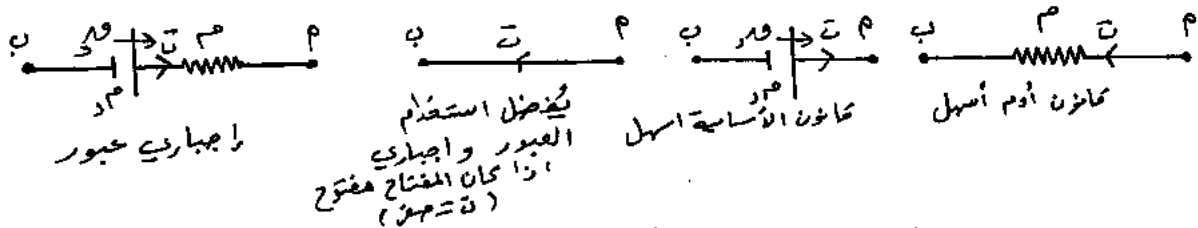 ب م ت أ
قانون أوم أسهل
ب قد ت أ
م د
قانون الأساسية أسهل
ب ت أ
يُفضل استخدام
العبور واجباري
اذا كان المفتاح مفتوح
(ت = صفر)
ب قد ت م أ
م د
إجباري عبور